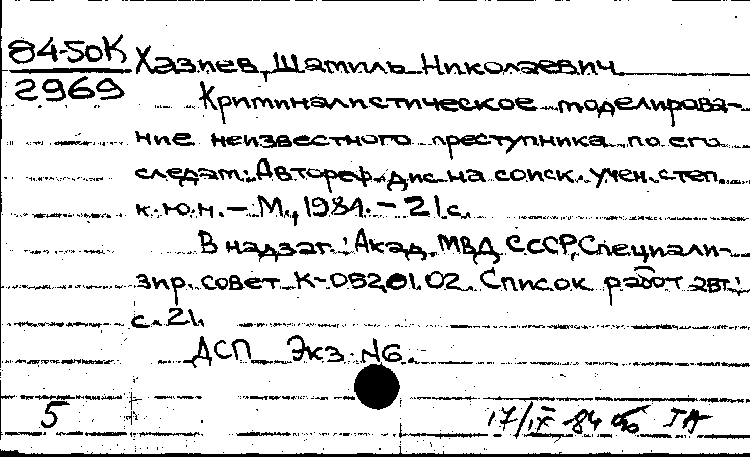 84-50К Хазиев, Шамиль Николаевич
2969
Криминалистическое моделирова-
ние неизвестного преступника по его
следам: Автореф. дис. на соиск. учен. степ.
к.ю.н. - М., 1984. - 21 с.
В надзаг.: Акад. МВД СССР, Специали-
зир. совет К-052.01.02. Список работ авт.:
с. 21.
ДСП Экз. №6.
5 17/IX-84